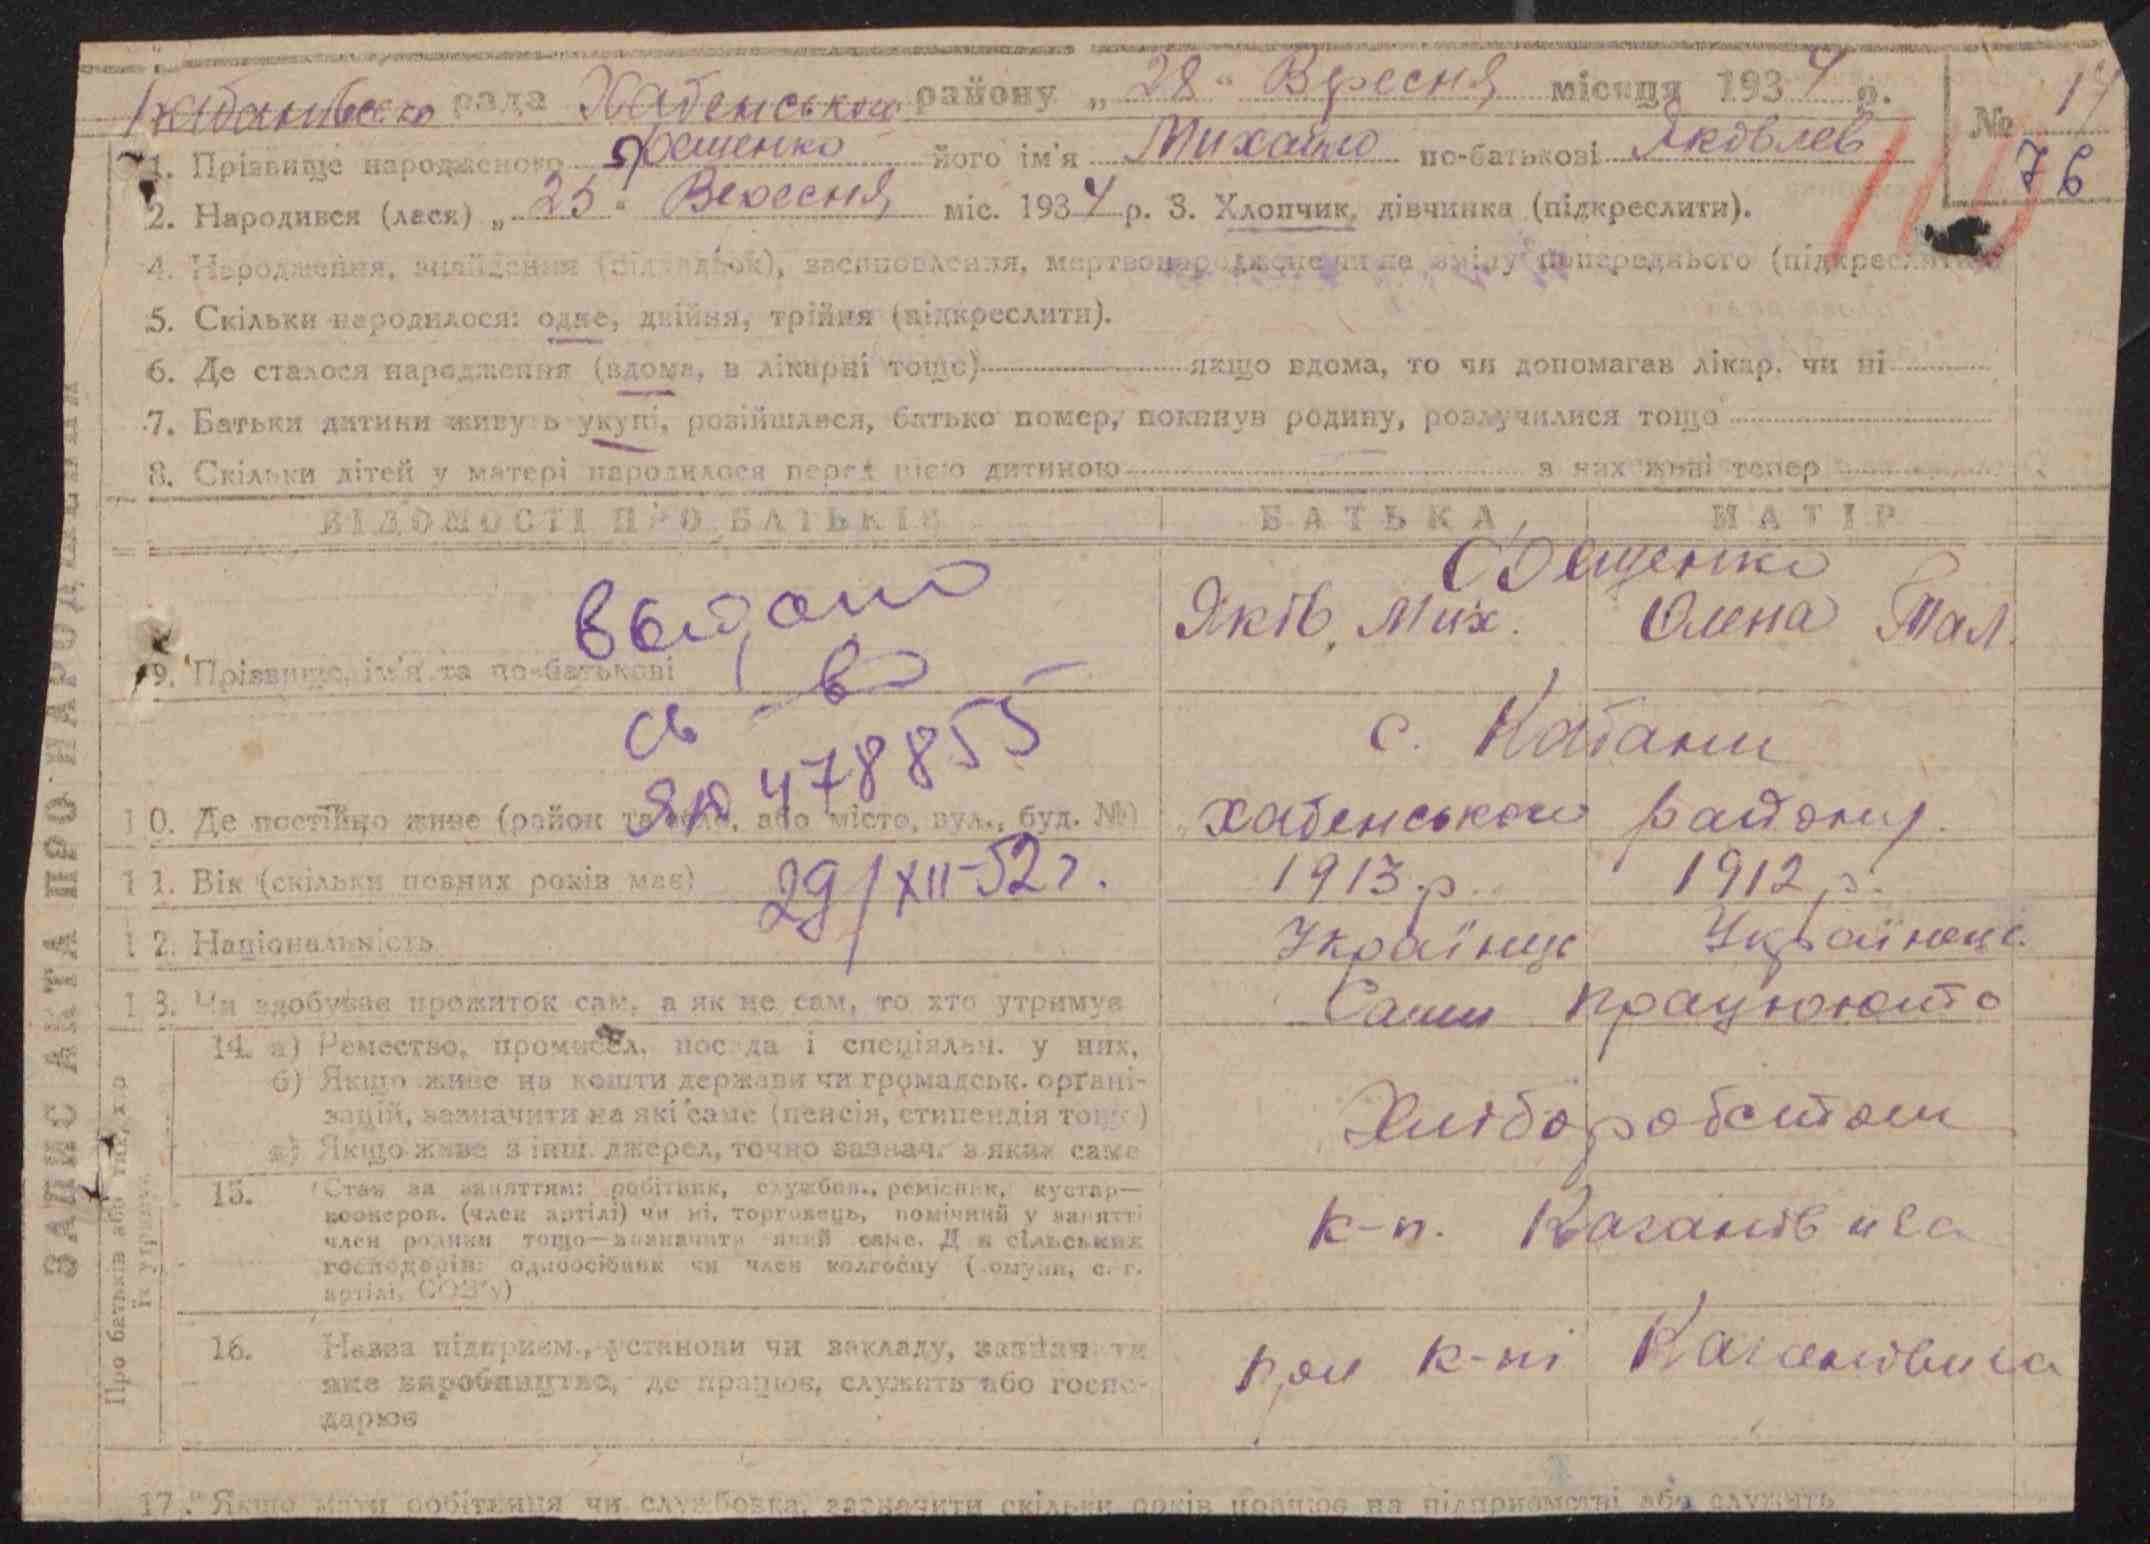 рада Хабенського району „ 28 " Вересня місяця 1934 р.
№ 17
76
1. Прізвище народженого Ященко його ім'я Михайло по-батькові Яковлев.
2. Народився (лася) „ 25 " Вересня міс. 1934 р. 3. Хлопчик, дівчинка (підкреслити).
4. Народження, знайдення (підкидьок), засиновлення, мертвонароджене чи на зміну попереднього (підкреслити)
5. Скільки народилося: одне, двійня, трійня (підкреслити).
6. Де сталося народження (вдома, в лікарні тощо) якщо вдома, то чи допомагав лікар, чи ні
7. Батьки дитини живуть укупі, розійшлися, батько помер, покинув родину, розлучилися тощо
8. Скільки дітей у матері народилося перед цією дитиною з них живі тепер
ЗАПИС АКТА ПРО НАРОДЖЕННЯ
ВІДОМОСТІ ПРО БАТЬКІВ БАТЬКА МАТІР
Яків Мих. Олена
9. Прізвище, ім'я та по-батькові
выдано
св-во
ЯЮ 478855
29/XII-52 г.
с. Кабани
10. Де постійно живе (район та село, або місто, вул., буд. №) Хабенського району.
11. Вік (скільки повних років має) 1913 р. 1912 р.
12. Національність Українці Українці
13. Чи здобуває прожиток сам, а як не сам, то хто утримує Сами працюють
Про батьків або тих, хто їх утримує
14. а) Ремество, промисел, посада і спеціяльн. у них,
б) Якщо живе на кошти держави чи громадськ. органі-
зацій, зазначити на які саме (пенсія, стипендія тощо)
в) Якщо живе з інш. джерел, точно зазнач. з яких саме
Хліборобством
15. Стан за заняттям: робітник, службов., ремісник, кустар—
кооперов. (член артілі) чи ні, торговець, помічний у занятті
член родини тощо—зазначити який саме. Для сільських
господарів: одноосібник чи член колгоспу (комуни, с. г.
артілі, СОЗ'у)
к-п. Кагановича
16. Назва підприєм., установи чи закладу, зазначити
яке виробництво, де працює, служить або госпо-
дарює
при к-пі Кагановича
17. Якщо мати робітниця чи службовка, зазначити скільки років працює на підприємстві або служить